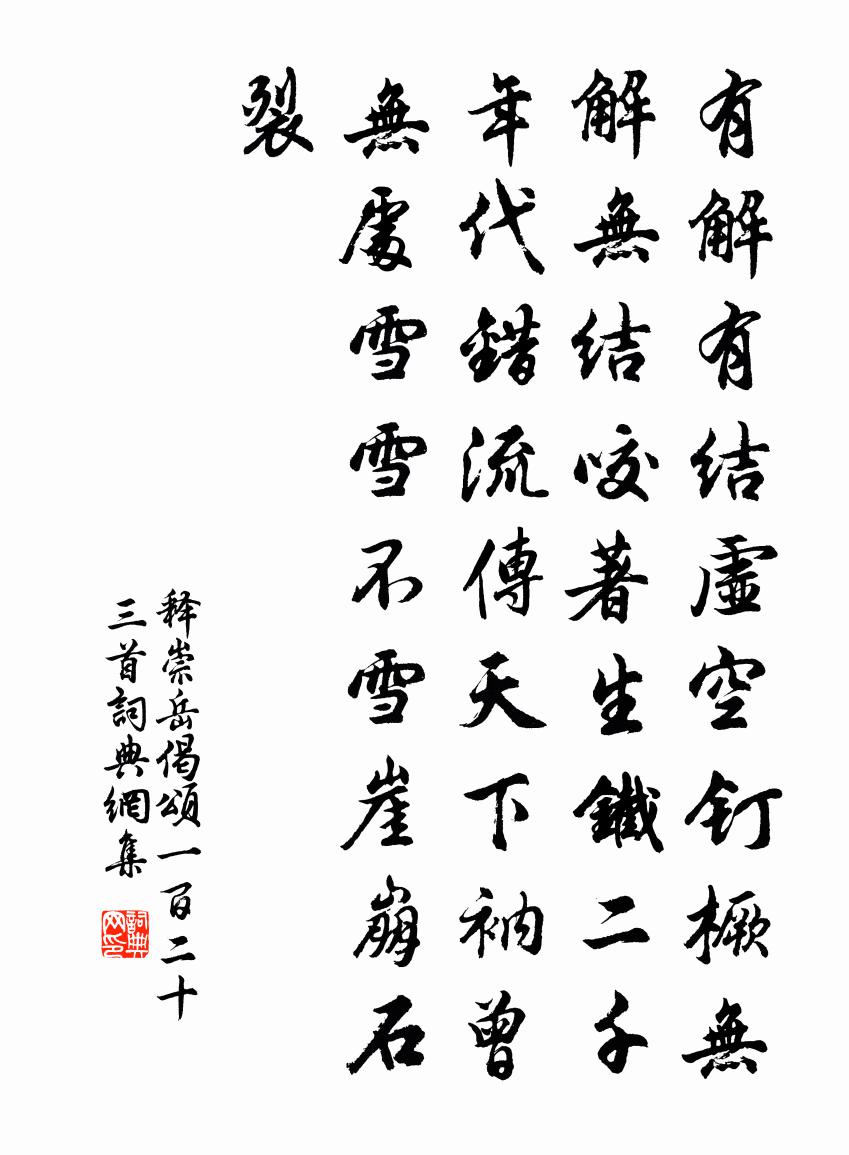 有解有結虛空钉橛無
解無結咬著生鐵二千
年代錯流傳天下衲曾
無處雪雪不雪崖崩石
裂
释崇岳偈頌一百二十
三首詞典網集
詞典网印